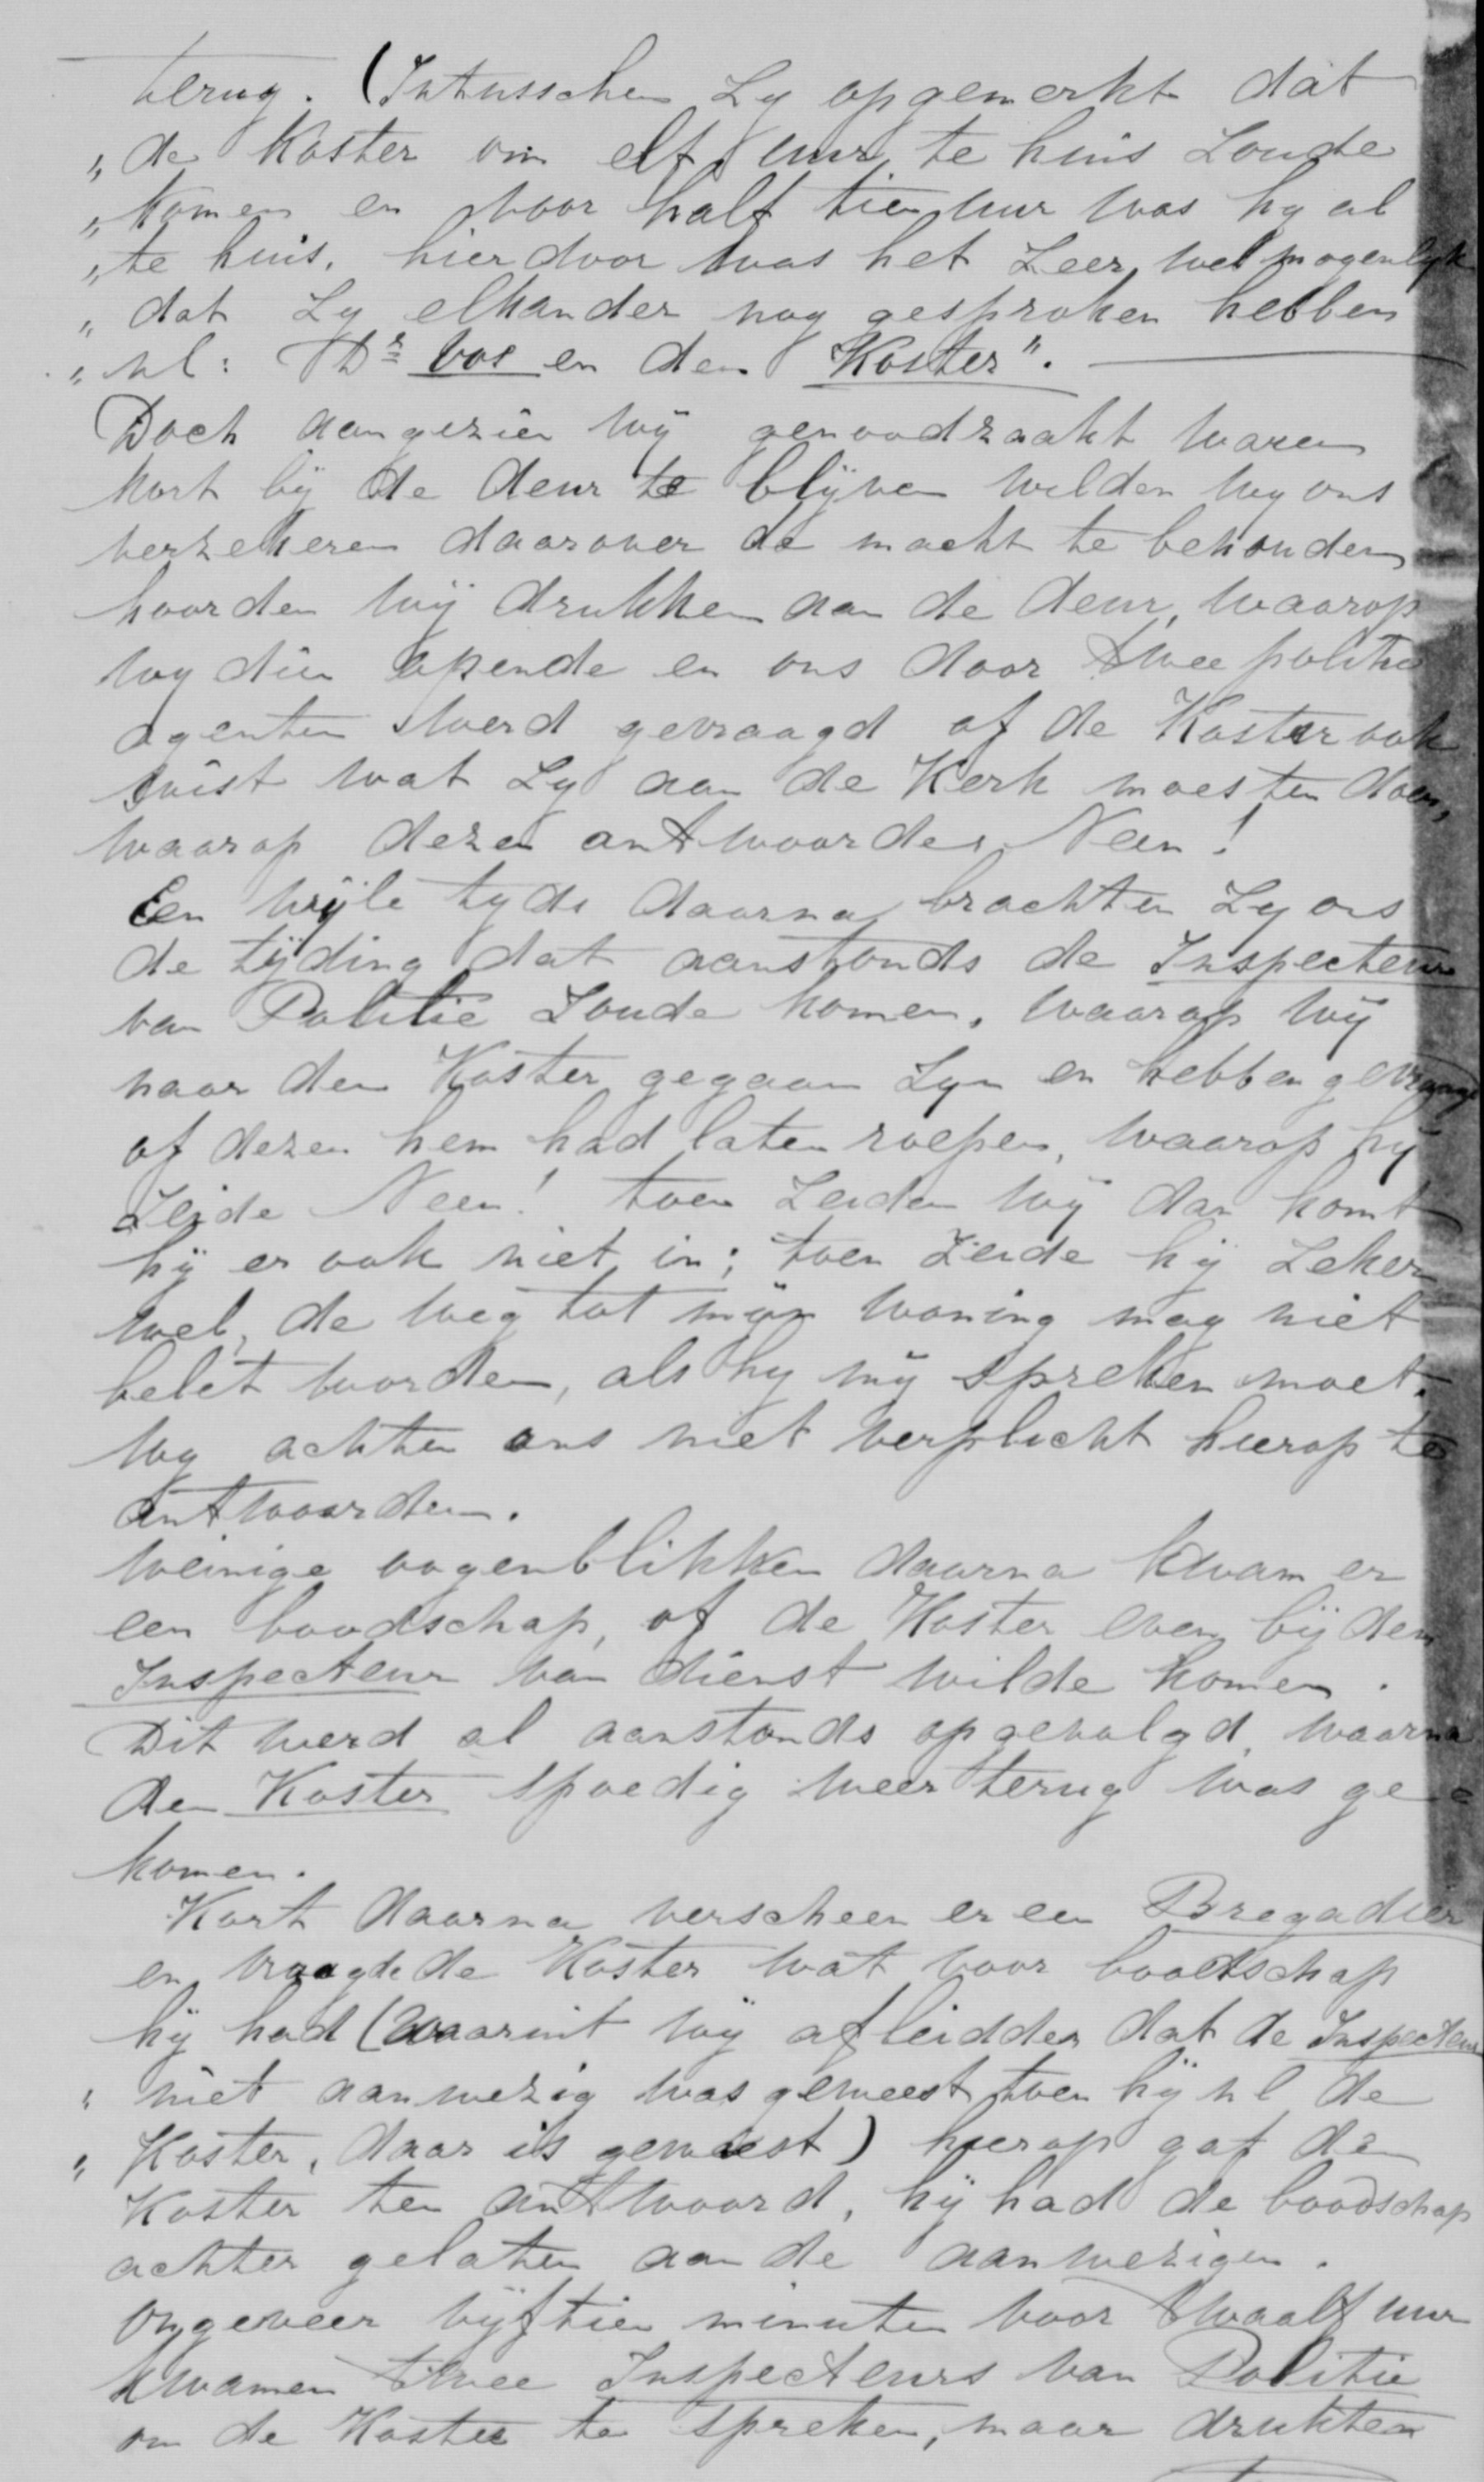 terug. (Intusschen Zy opgemerkt dat
„ de Koster om elf uur te huis Zoude
„ komen en voor half tien uur was hy al
„ te huis, hierdoor was het Zeer wel mogenlyk
„ dat Zy elkander nog gesproken hebben
„ nl: Dr Vos en den Koster".
Doch aangezien wij genoodzaakt waren
kort bij de deur te blijven wilden wy ons
verzekeren daarover de macht te behouden
hoorden wij drukken aan de deur, waarop
wy dien opende en ons door twee politie
agenten werd gevraagd of de Koster ook
wist wat Zy aan de Kerk moesten doen,
waarop dezen antwoorden Neen!
Een wijle tyds daarna brachten Zy ons
de tijding dat aanstonds de Inspecteur
van Politie Zoude komen, waarop wij
naar den Koster gegaan Zyn en hebben gevraagd
of dezen hem had laten roepen, waarop hij
Zeide Neen! toen Zeiden wij dan komt
hij er ook niet in; toen Zeide hij Zeker
wel, de weg tot mijn woning mag niet
belet worden, als hy mij spreken moet.
Wy achten ons niet verplicht hierop te
antwoorden.
Weinige oogenblikken daarna kwam er
een boodschap, of de Koster even bij den
Inspecteur van dienst wilde komen.
Dit werd al aanstonds opgevolgd, waarna
den Koster spoedig weer terug was ge=
komen.
Kort daarna verscheen er een Bregadier
en vraagde de Koster wat voor boodschap
hij had (waaruit wij afleidden dat de Inspecteur
„ niet aanwezig was geweest toen hij nl de
„ Koster, daar is geweest) hierop gaf de
Koster ten antwoord, hij had de boodschap
achter gelaten aan de aanwezigen.
Ongeveer vijftien minuten voor twaalf uur
kwamen twee Inspecteurs van Politie
om de Koster te spreken, maar drukten